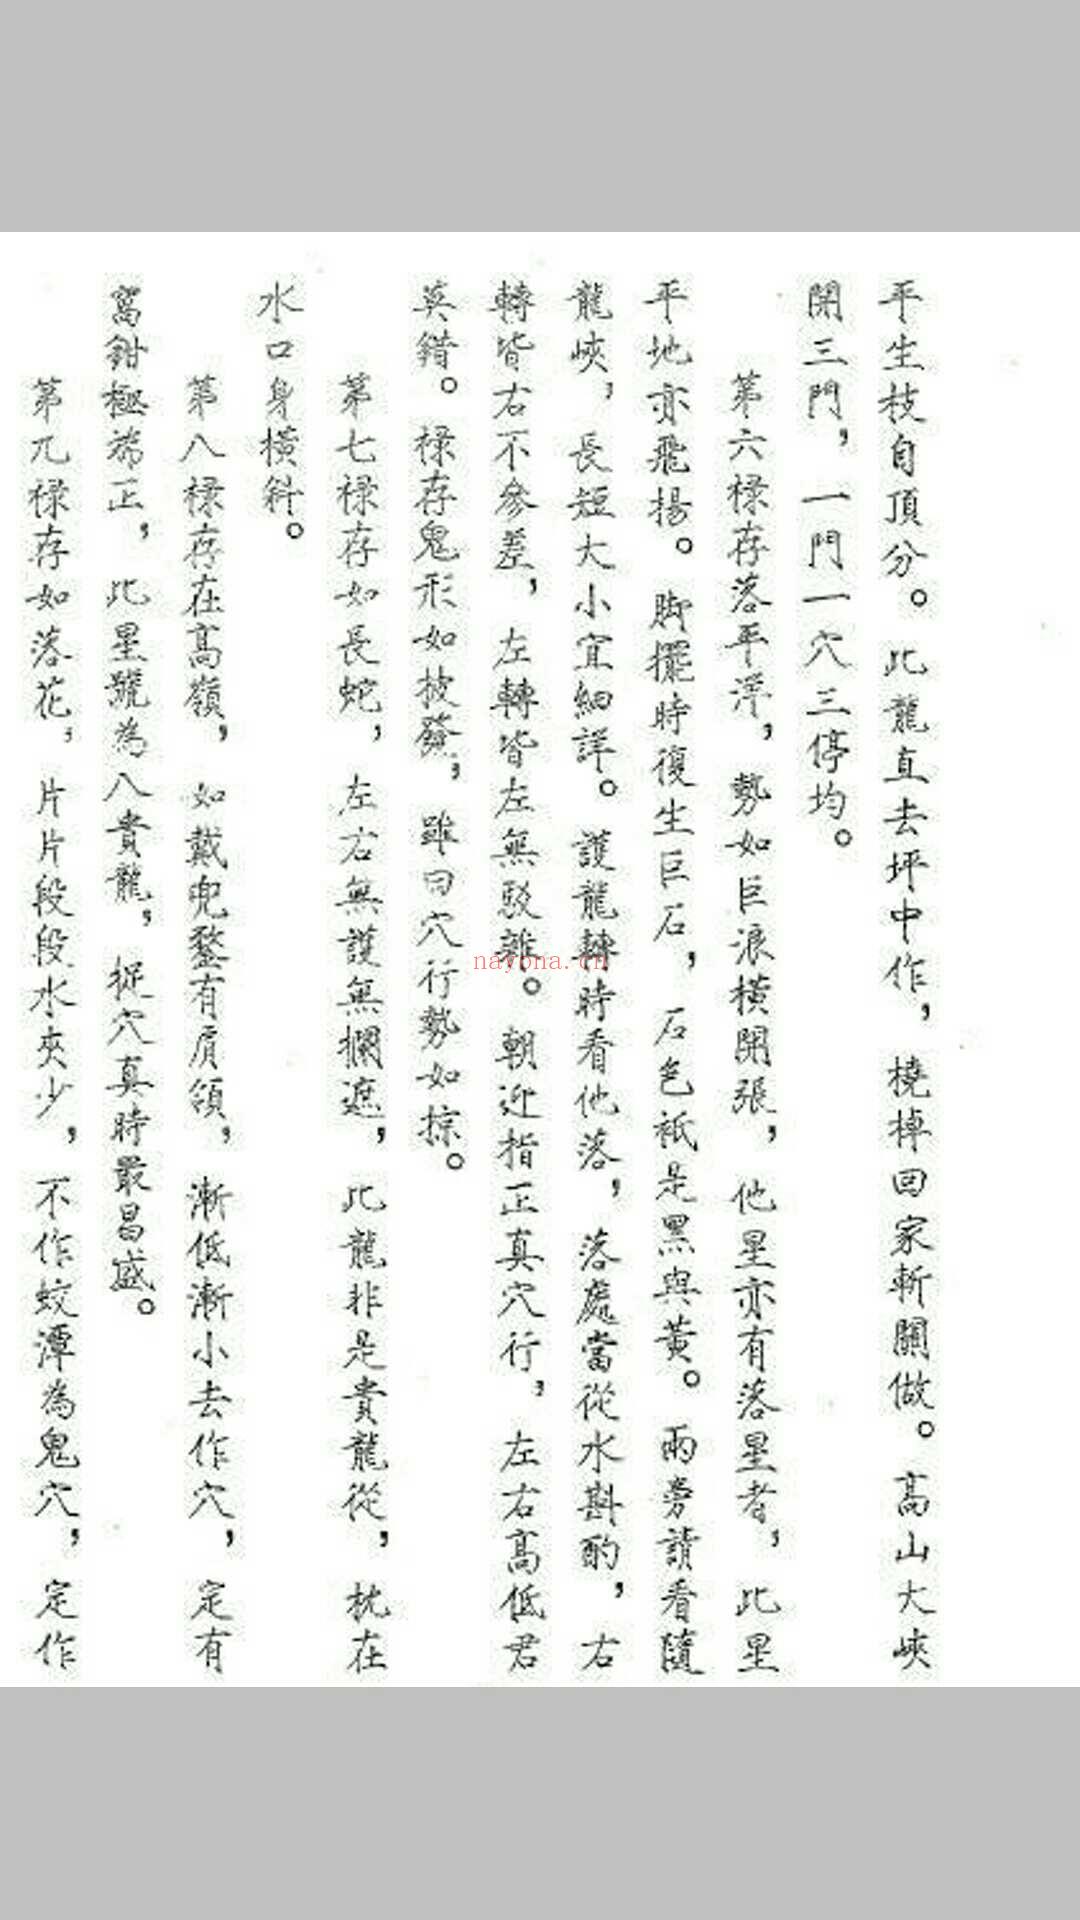 平生枝自頂分。此龍直去坪中作，橈棹回家斬關做。高山大峽
開三門，一門一穴三停均。
第六祿存落平洋，勢如巨浪橫開張，他星亦有落星者，此星
平地亦飛揚。脚擺時復生巨石，石色袛是黑與黃。兩旁請看隨
龍峽，長短大小宜細詳。護龍轉時看他落，落處當從水斟酌，右
轉皆右不參差，左轉皆左無駁雜。朝迎指正真穴行，左右高低君
莫錯。祿存鬼形如披發，雖曰穴行勢如掠。
第七祿存如長蛇，左右無護無攔遮，此龍非是貴龍從，枕在
水口身橫斜。
第八祿存在高嶺，如戴兜鍪有肩領，漸低漸小去作穴，定有
窩鉗極端正，此星號為八貴龍，捉穴真時最昌盛。
第九祿存如落花，片片段段水夾少，不作蛟潭為鬼穴，定作
nayona.cn